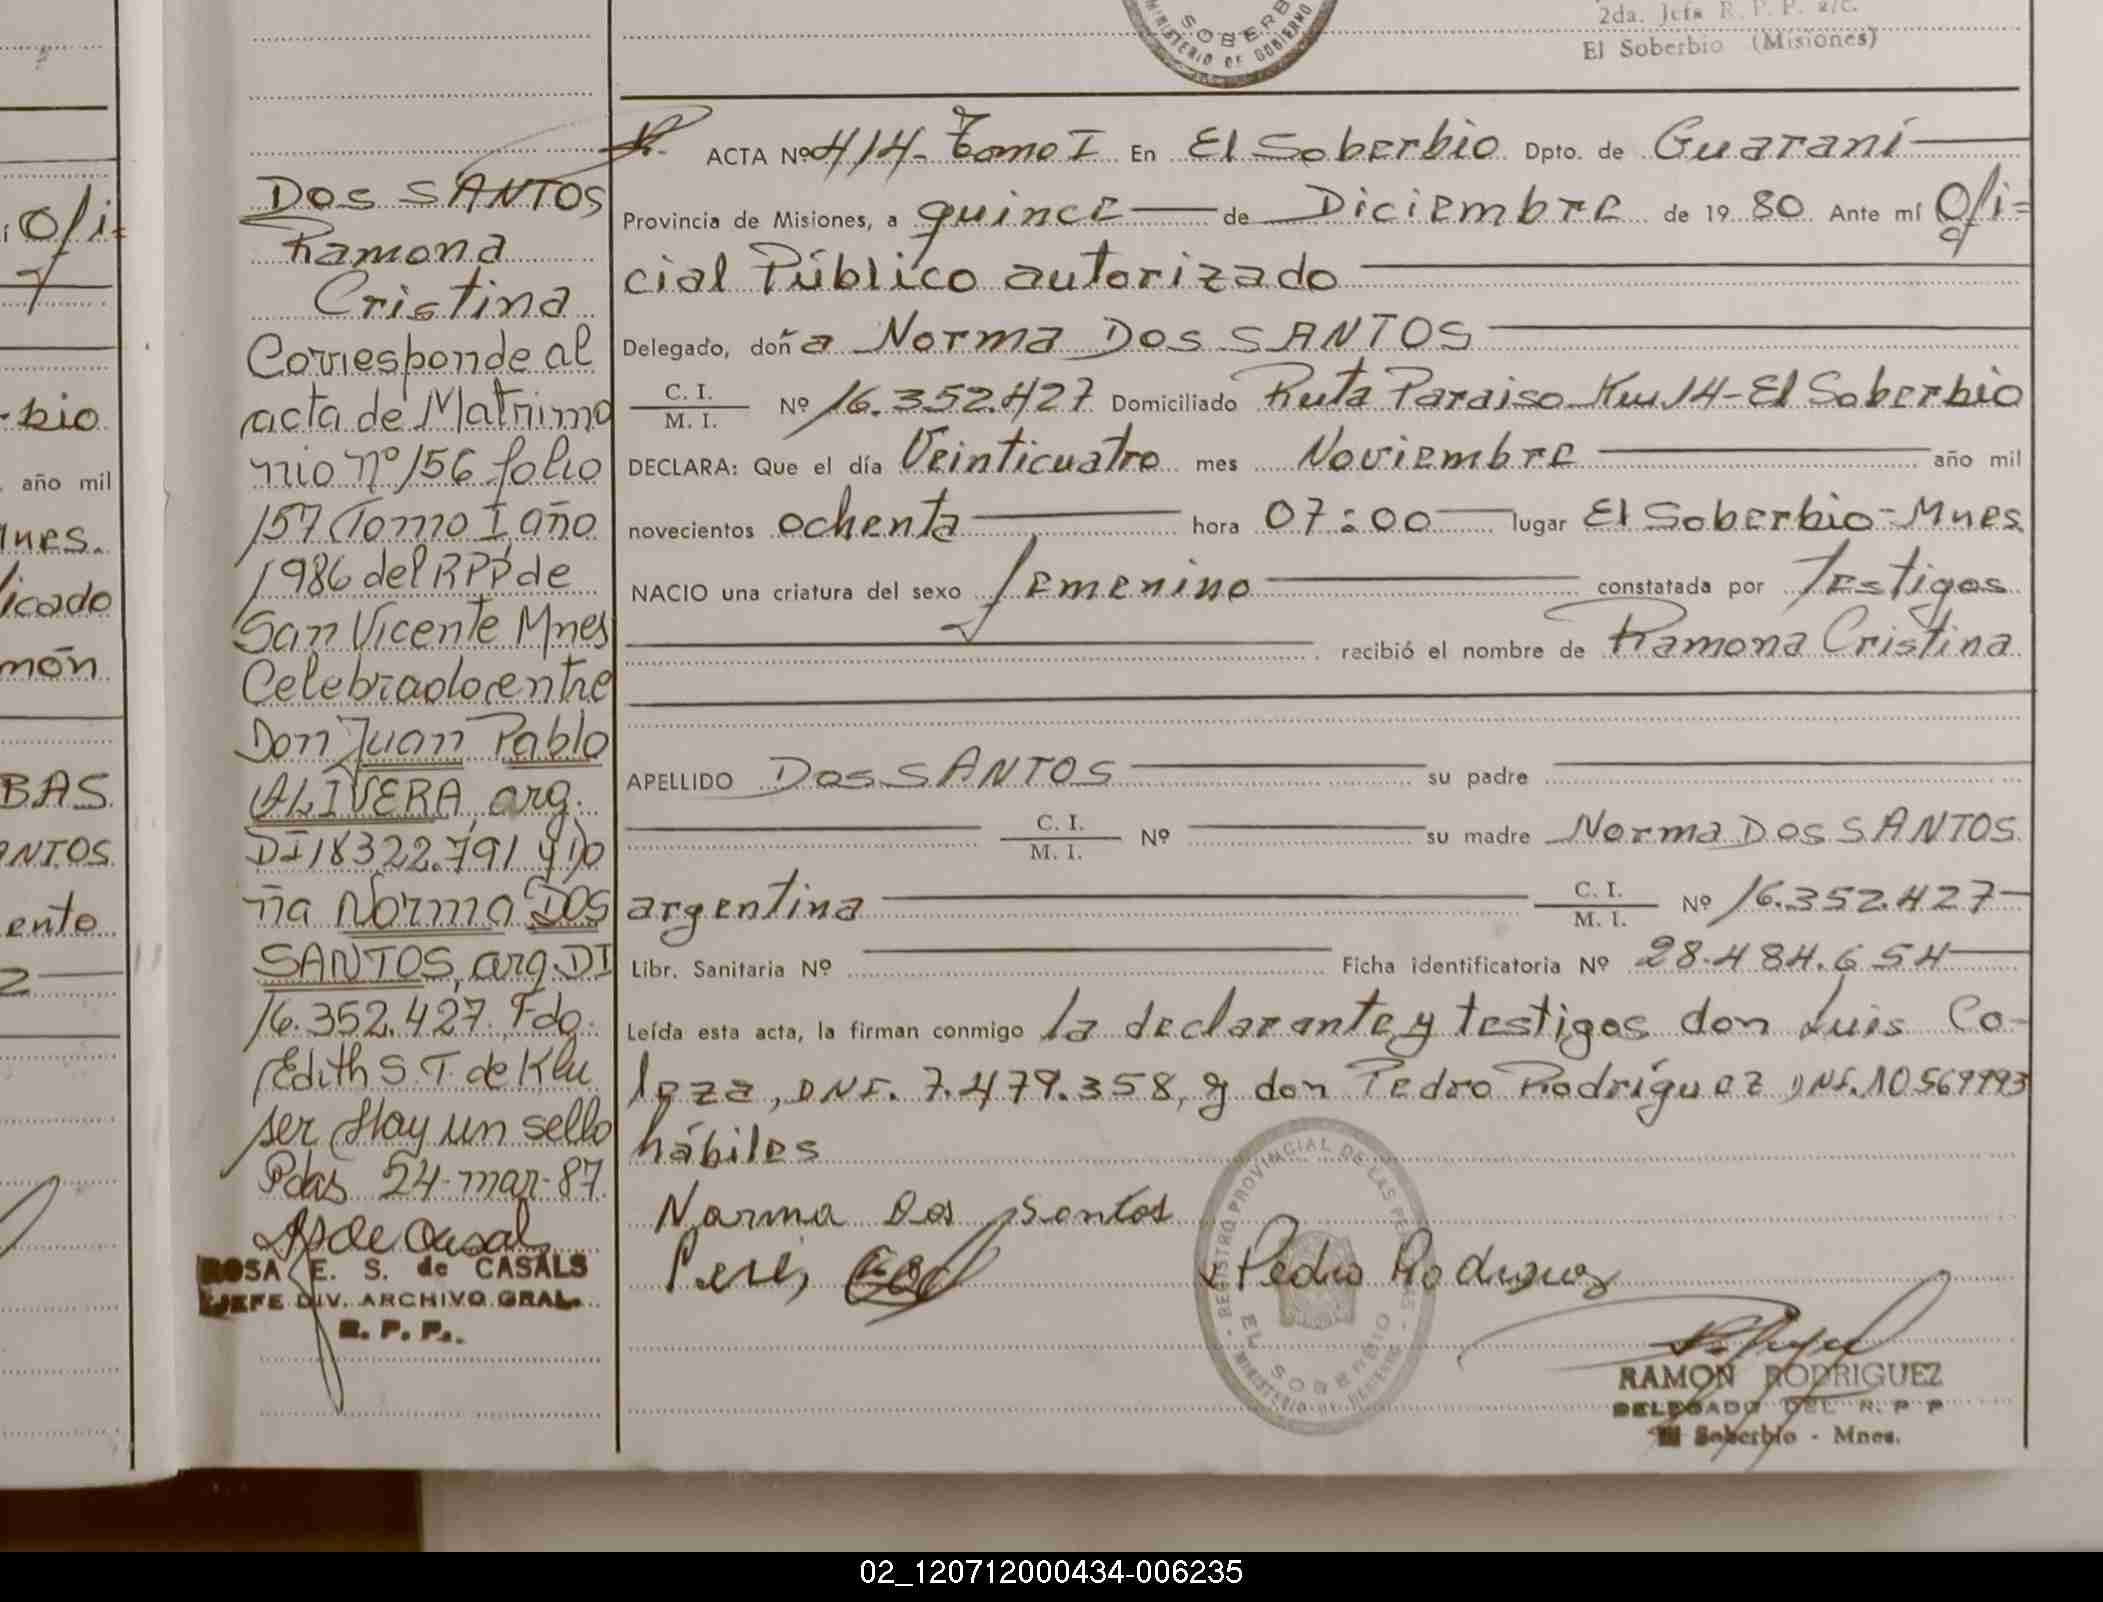 SOBERB
MINISTERIO DE GOBIERNO
2da. Jefa R. P. P. a/c.
El Soberbio (Misiones)
Ofi=
-bio
año mil
Mnes.
licado
món
BAS
ANTOS
ento
Dos SANTOS
Ramona
Cristina
Corresponde al
acta de Matrimo
nio nº 156 folio
157 Tomo I año
1986 del RPP de
San Vicente Mnes
Celebrado entre
Don Juan Pablo
ALIVERA, arg.
DI 18322.791 y Do
ña Norma DOS
SANTOS, arg. DI
16.352.427. Fdo.
Edith S. T. de Klu
ser Hay un sello
Pdas 24-mar-87.
ROSA E. S. de CASALS
JEFE DIV. ARCHIVO GRAL.
R. P. P.
ACTA Nº 414- Tomo I En El Soberbio Dpto. de Guaraní
Provincia de Misiones, a quince de Diciembre de 19 80 Ante mí Ofi=
cial Público autorizado
Delegado, doña Norma Dos SANTOS
C. I. / M. I. Nº 16.352.427 Domiciliado Ruta Paraiso Km 14-El Soberbio
DECLARA: Que el día Veinticuatro mes Noviembre año mil
novecientos ochenta hora 07:00 lugar El Soberbio-Mnes
NACIO una criatura del sexo femenino constatada por Testigos
recibió el nombre de Ramona Cristina
APELLIDO Dos SANTOS su padre
C. I. / M. I. Nº su madre Norma Dos SANTOS
argentina C. I. / M. I. Nº 16.352.427
Libr. Sanitaria Nº Ficha identificatoria Nº 28.484.654
Leída esta acta, la firman conmigo la declarante y testigos don Luis Co-
leza, DNI. 7.479.358, y don Pedro Rodríguez DNI. 10569993
hábiles
Norma Dos Santos
Pedro Rodriguez
REGISTRO PROVINCIAL DE LAS PERSONAS
EL SOBERBIO
RAMON RODRIGUEZ
DELEGADO DEL R. P P
El Soberbio - Mnes.
02_120712000434-006235